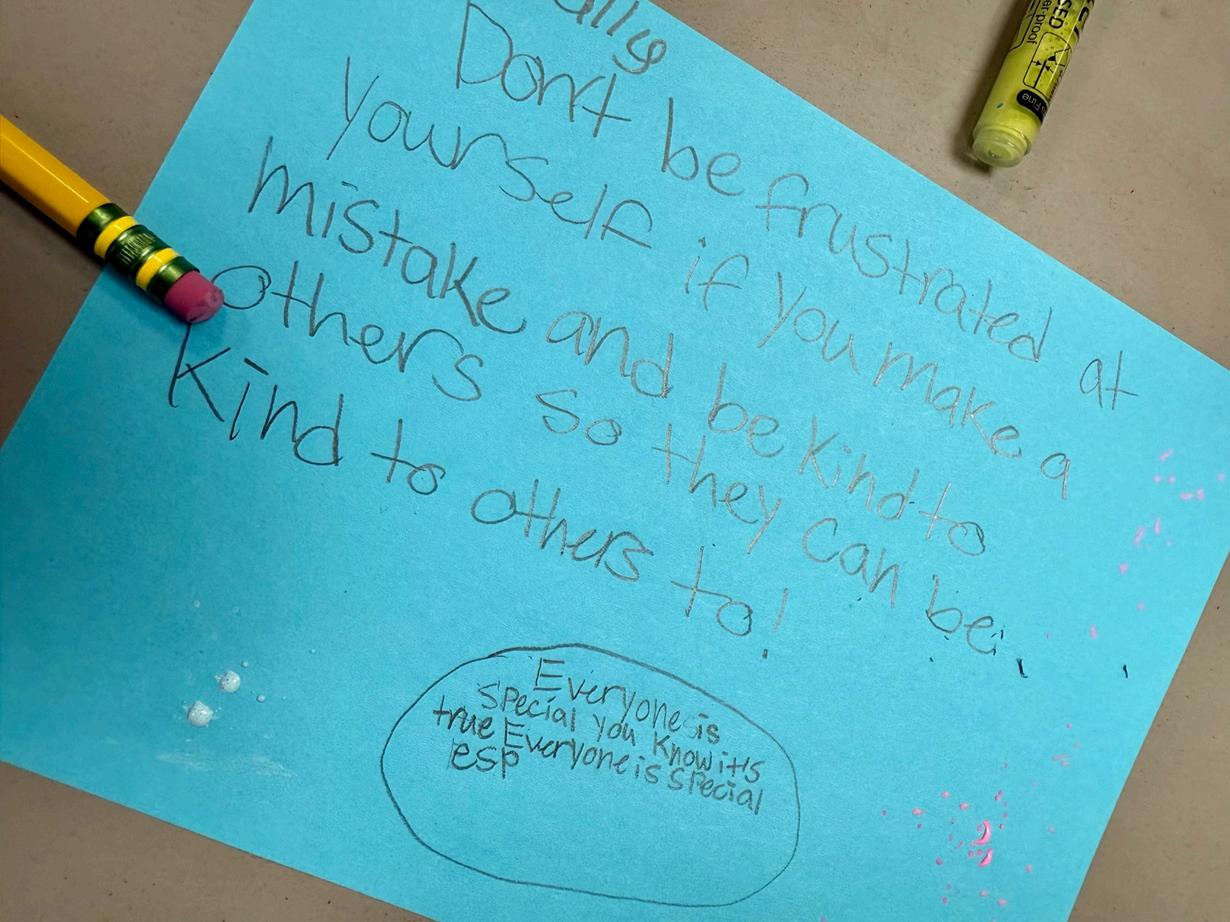 Don't be frustrated at
yourself if you make a
mistake and be kind to
others so they can be
kind to others to!
Everyone is
special you know it's
true Everyone is special
esp